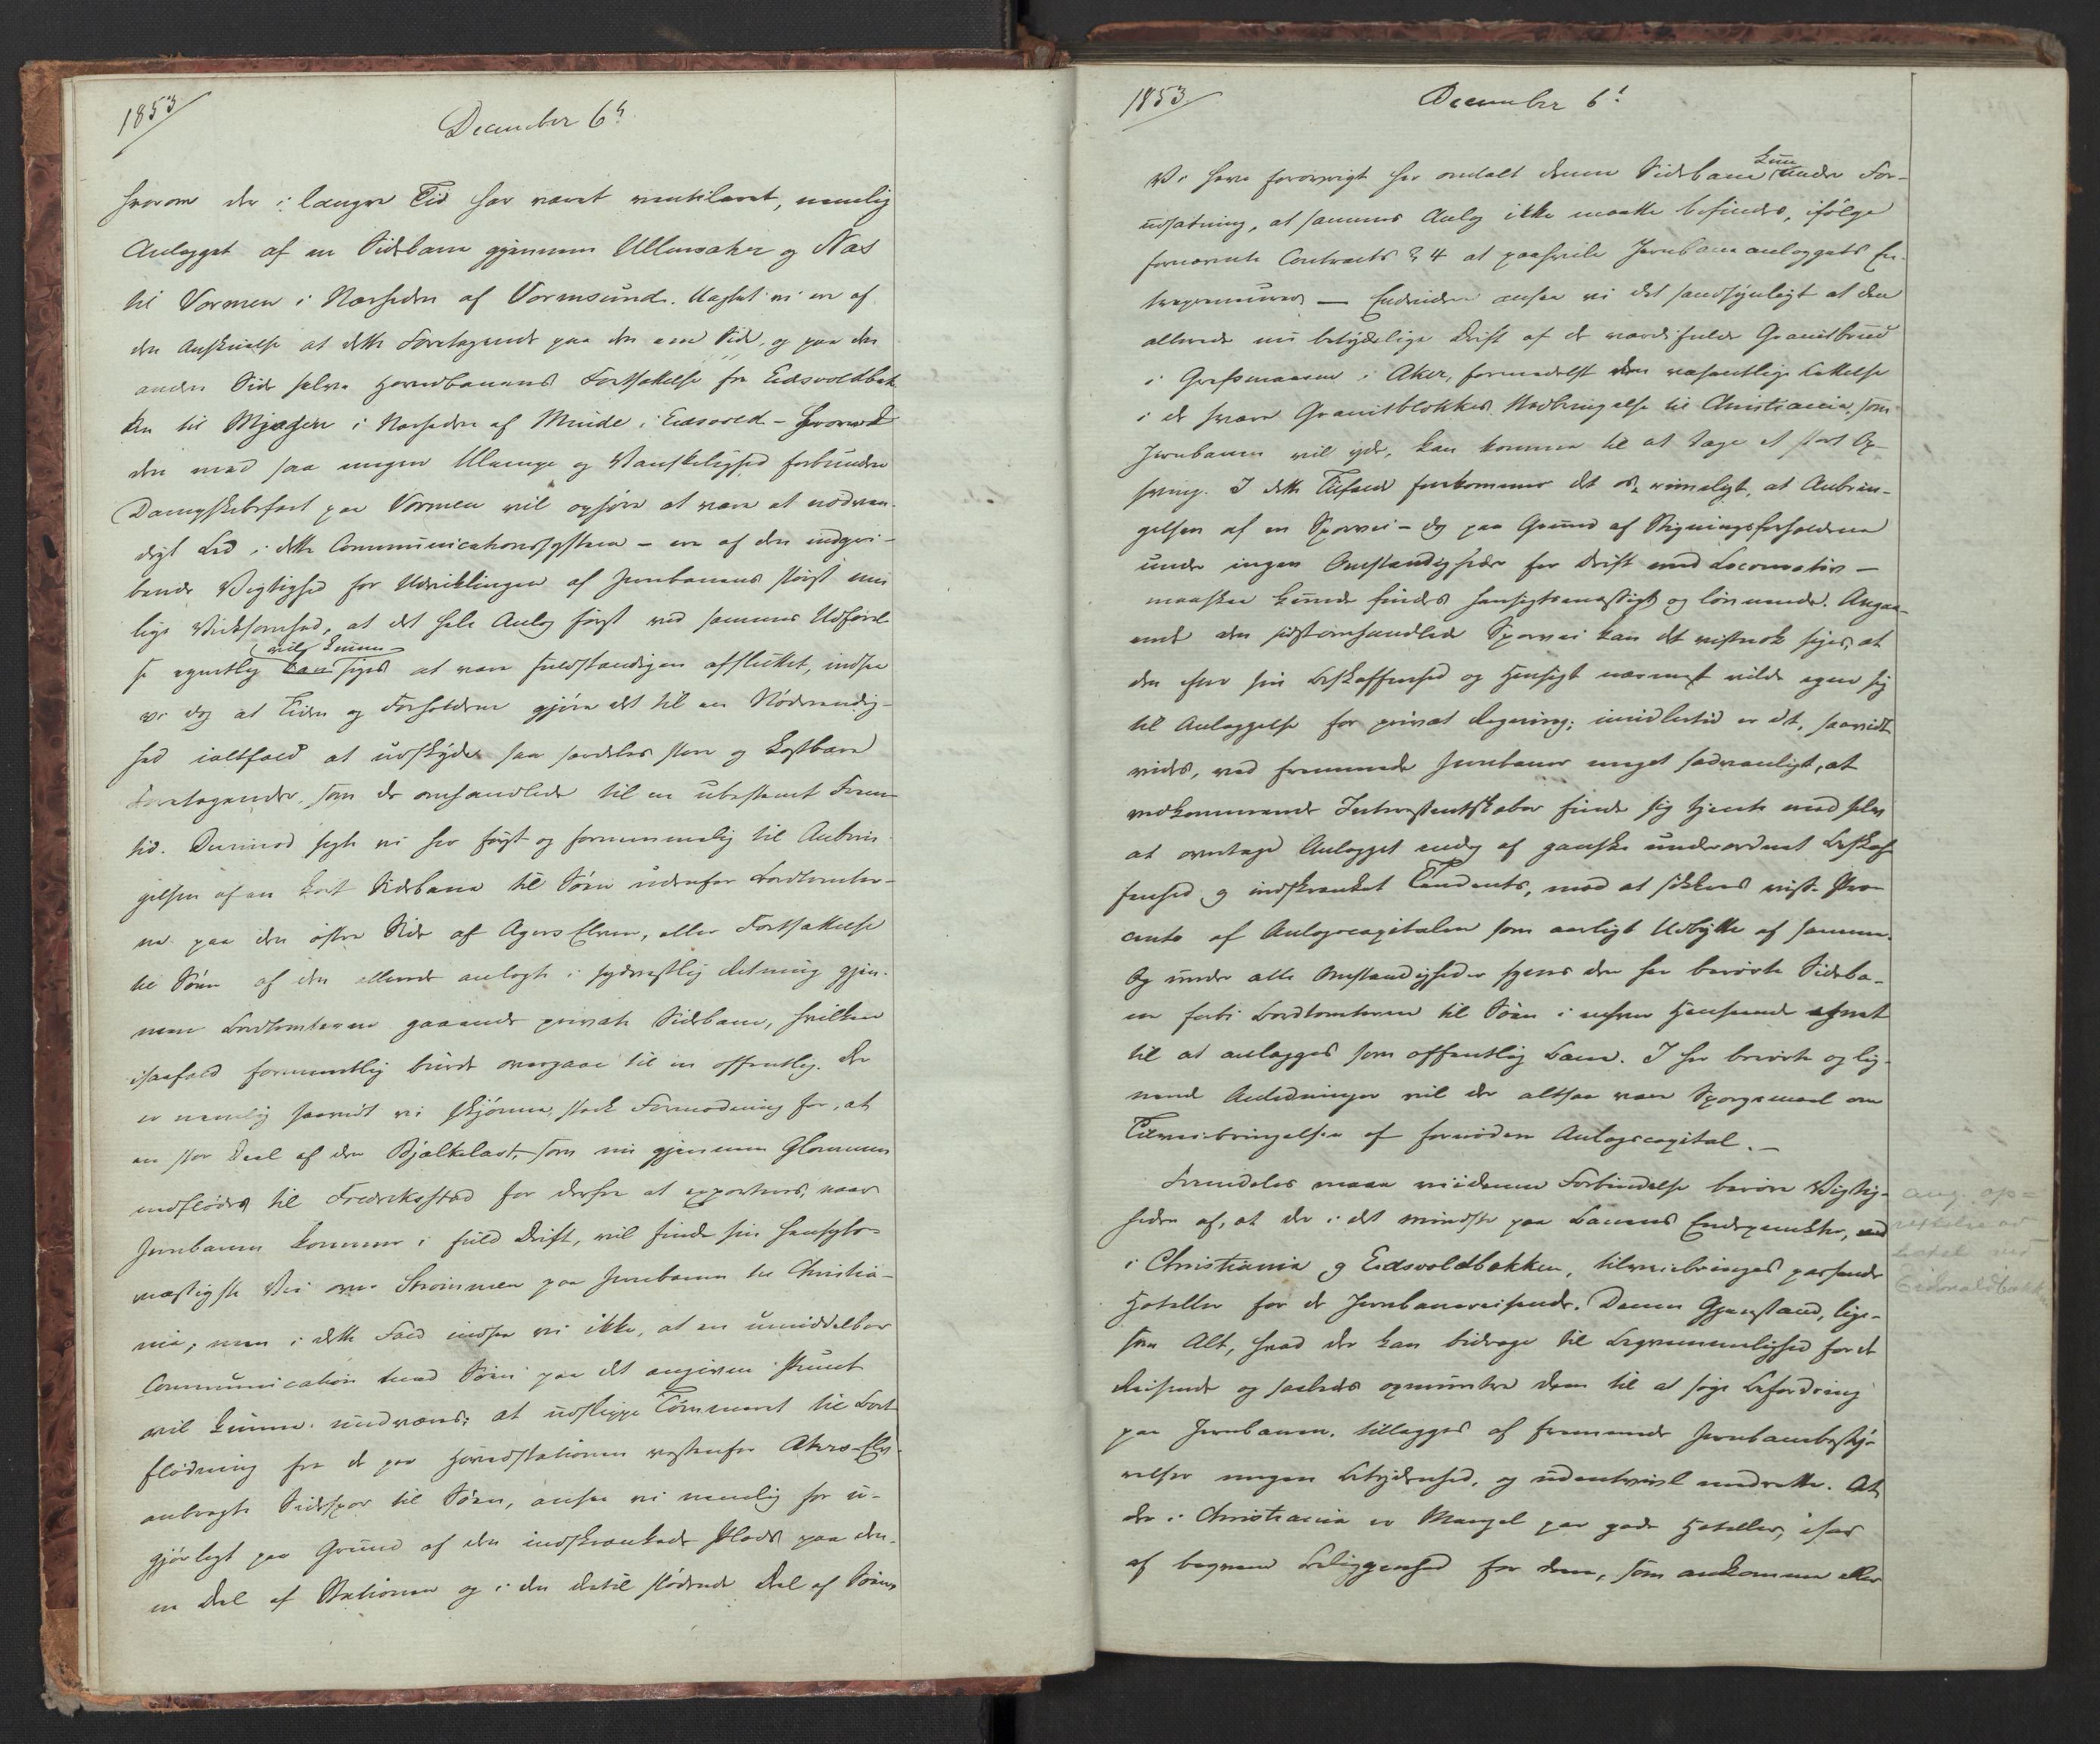 1853
December 6t
hvorom der i længre Tid har været ventileret, nemlig
Anlægget af en Sidebane gjennem Ullensaker og Næs
til Vormen i Nærheden af Vormsund. Uagtet vi ere af
den Anskuelse at dette Foretagende paa den ene Side, og paa den
anden Side selve Hovedbanens Fortsættelse fra Eidsvoldbak-
ken til Mjøsen i Nærheden af Minde i Eidsvold – hvorved
den med saa megen Ulempe og Vanskelighed forbundne
Dampskibsfart paa Vormen vil ophøre at være et nødven-
digt Led i dette Communicationssystem – ere af den indgri-
bende Vigtighed for Udviklingen af Jernbanens størst mu-
lige Virksomhed, at det hele Anlæg først ved sammes Udførel-
se egentlig vil kunne siges at være fuldstændigen afsluttet, indsee
vi dog at Tiden og Forholdene gjøre det til en Nødvendig-
hed ialtfald at udskyde saa særdeles store og kostbare
Foretagender, som de omhandlede til en ubestemt Frem-
tid. Derimod sigte vi her først og fornemmelig til Anbrin-
gelsen af en kort Sidebane til Søen udenfor Bordtomter-
ne paa den østre Side af Agers Elven, eller Fortsættelse
til Søen af den allerede anlagte i sydvestlig Retning gjen-
nem Bordtomterne gaaende private Sidebane, hvilken
isaafald formeentlig burde overgaae til en offentlig. Der
er nemlig saavidt vi skjønne, stærk Formodning for, at
en stor Deel af den Bjælkelast, som nu gjennem Glommen
nedflødes til Fredriksstad for derfra at exporteres, naar
Jernbanen kommer i fuld Drift, vil finde sin hensigts-
mæssigste Vei over Strømmen paa Jernbanen til Christia-
nia; men i dette Fald indsee vi ikke, at en umiddelbar
Communication med Søen paa det angivne Punct
vil kunne undværes; at udskibe Tømmeret til Bort-
flødning fra de paa Hovedstationen vestenfor Akers-Elv
anbragte Sidespor til Søen, ansee vi nemlig for u-
gjørligt paa Grund af den indskrænkede Plads paa den-
ne Deel af Stationen og i den dertil stødende Deel af Søen.
1853
December 6t
Vi have forøvrigt her omtalt denne Sidebane kun under For-
udsætning, at sammes Anlæg ikke maatte befindes, ifølge
fornævnte Contracts § 4 at paahvile Jernbaneanlæggets En-
trepreneurer – Endvidere ansee vi det sandsynligt at den
allerede nu betydelige Drift af de værdifulde Granitbrud
i Grefsenaasen i Aker, formedelst den væsentlige Lettelse
i de svære Granitblokkes Nedbringelse til Christiania, som
Jernbanen vil yde, kan komme til at tage et stort Op-
sving. I dette Tilfælde forekommer det os rimeligt, at Anbrin-
gelsen af en Sporvei – dog paa Grund af Stigningsforholdene
under ingen Omstændigheder for Drift med Locomotiv –
maaskee kunde findes hensigtsmæssigt og lønnende. Angaa-
ende den sidstomhandlede Sporvei kan det vistnok siges, at
den efter sin Beskaffenhed og Hensigt nærmest vilde egne sig
til Anlæggelse for privat Regning; imidlertid er det, saavidt
vides, ved fremmede Jernbaner meget sædvanligt, at
vedkommende Interessentskaber finde sig tjente med selv
at overtage Anlægget endog af ganske underordnet Beskaf-
fenhed og indskrænket Tendents, mod at sikkres visse Pro-
cento af Anlægscapitalen som aarligt Udbytte af samme.
Og under alle Omstændigheder synes den her berørte Sideba-
ne forbi Bordtomterne til Søen i enhver Henseende egnet
til at anlægges som offentlig Bane. I her berørte og lig-
nende Anledninger vil der altsaa være Spørgsmaal om
Tilveiebringelsen af fornøden Anlægscapital. –
Fremdeles maae vi i denne Forbindelse berøre Vigtig-
heden af, at der i det mindste paa Banens Endepunkter,
i Christiania og Eidsvoldbakken, tilveiebringes passende
Hoteller for de Jernbanereisende. Denne Gjenstand, lige-
som Alt, hvad der kan bidrage til Begvemmelighed for de
Reisende og saaledes opmuntre dem til at søge Befordring
paa Jernbanen, tillægges af fremmede Jernbanebesty-
relser megen Betydenhed, og udentvivl medrette. At
der i Christiania er Mangel paa gode Hoteller, især
af begvem Beliggenhed for dem, som ankomme eller
ang. op=
rettelse av
hotel ved
Eidsvoldbakk